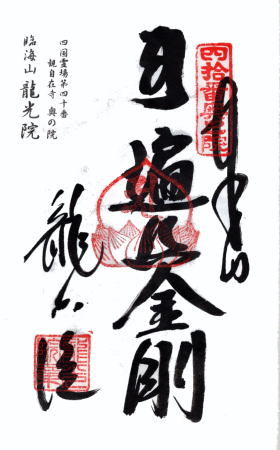 四拾番奥之院
奉拝
遍照金剛
龍光院
四国霊場第四十番
観自在寺 奥の院
臨海山 龍光院